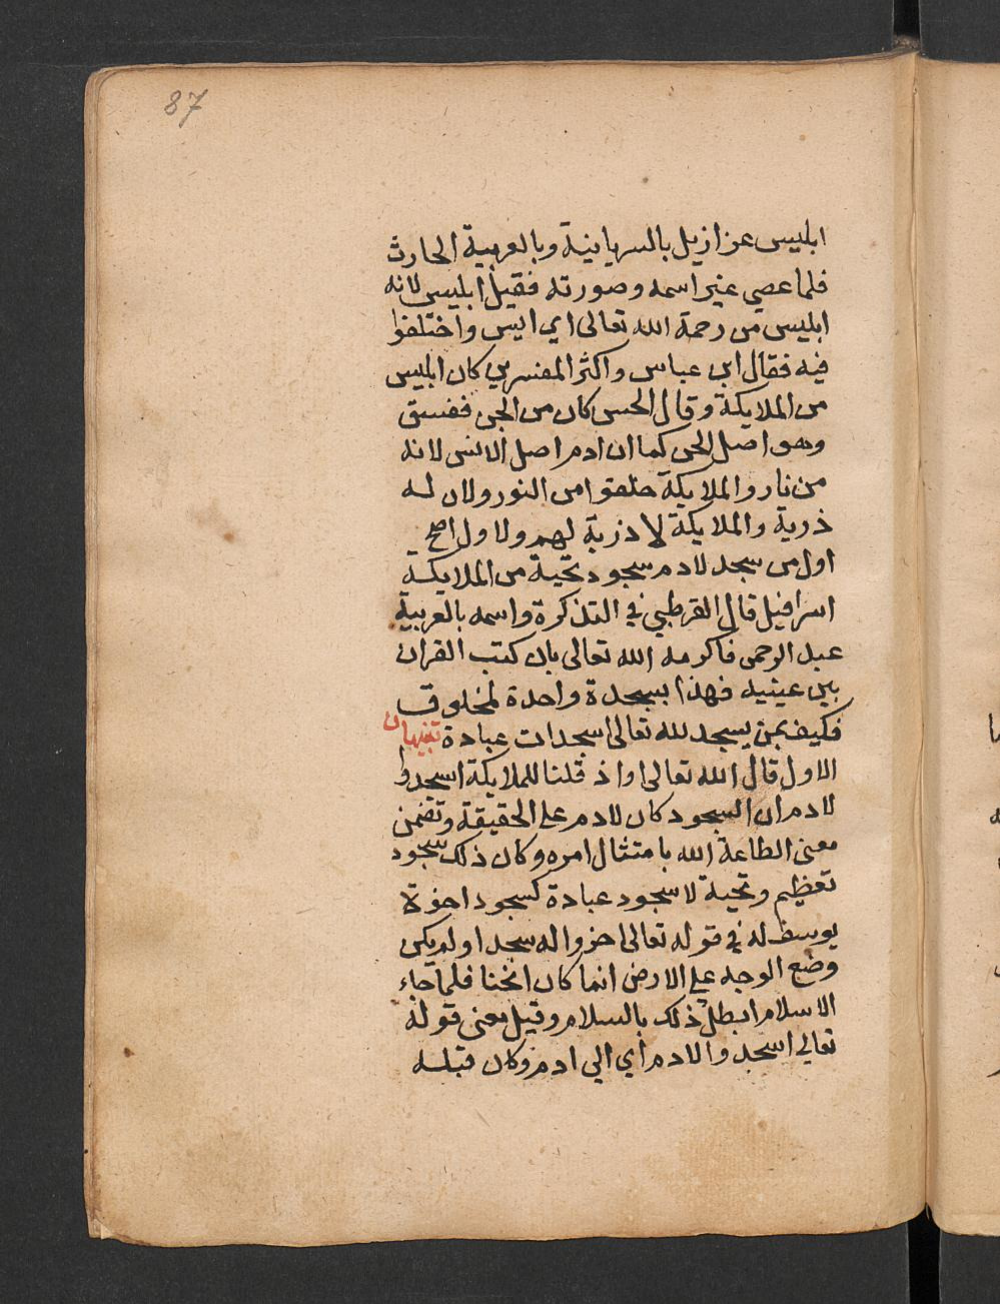 87
ابليس عزازيل بالسريانية وبالعربية الحارث
فلما عصي غير اسمه وصورته فقيل ابليس لانه
ابليس من رحمة الله تعالى اي ايس واختلفوا
فيه فقال ابن عباس واكثر المفسرين كان ابليس
من الملايكة وقال الحسن كان من الجن ففسق
وهو اصل الجن كما ان ادم اصل الانس لانه
من نار والملايكة خلقوا من النور ولان له
ذرية والملايكة لا ذرية لهم ولاول اصح
اول من سجد لادم سجود تحية من الملايكة
اسرافيل قال القرطبي في التذكرة واسمه بالعربية
عبد الرحمن فاكرمه الله تعالى بان كتب القران
بين عينيه فهذا بسجدة واحدة لمخلوق
فكيف بمن يسجد لله تعالى سجدات عبادة تنبيهان
الاول قال الله تعالى واذ قلنا للملايكة اسجدوا
لادم ان السجود كان لادم على الحقيقة وتضمن
معنى الطاعة الله بامتثال امره وكان ذلك سجود
تعظيم وتحية لا سجود عبادة كسجود اخوة
يوسف له في قوله تعالى خروا له سجدا ولم يكن
وضع الوجه على الارض انما كان انحنا فلما جاء
الاسلام ابطل ذلك بالسلام وقيل معنى قوله
تعالى اسجدوا لادم أي الي ادم وكان قبله